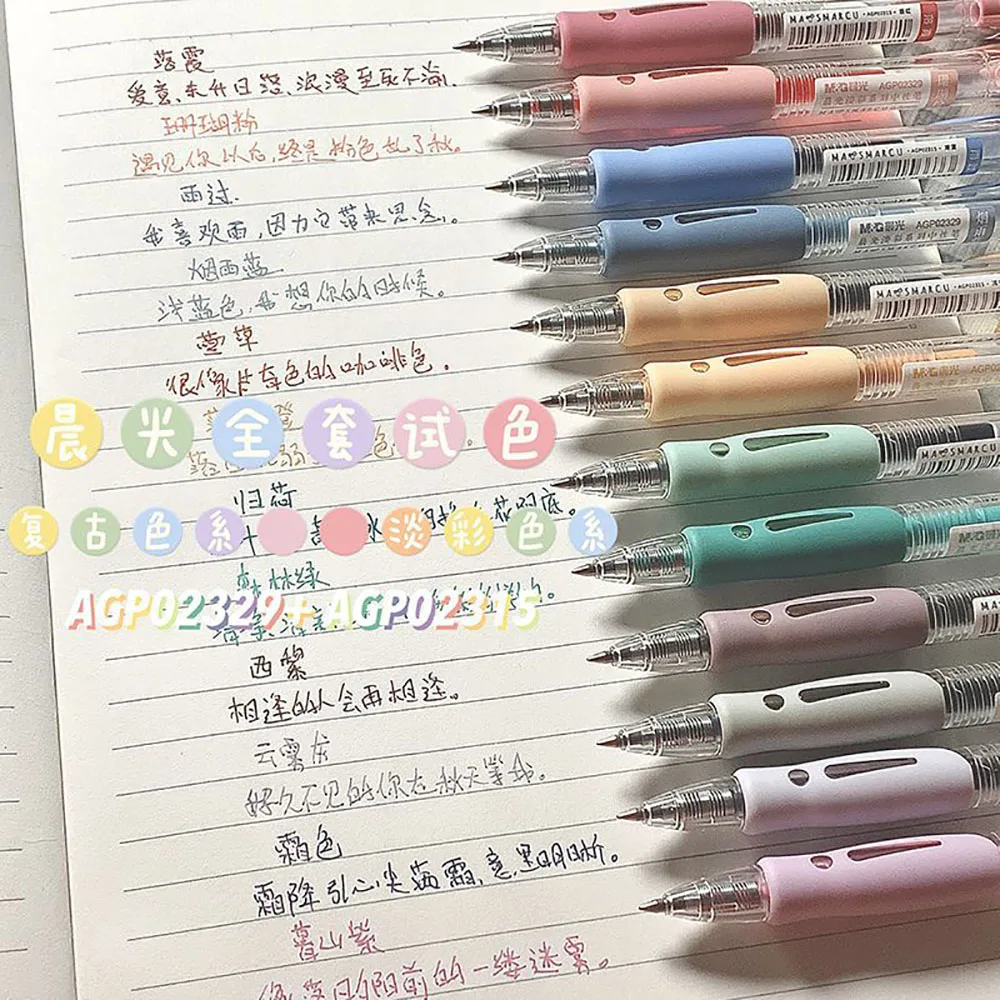 落霞
爱意、东升日落、浪漫至死不渝。
珊瑚粉
遇见你以后,终是粉色乱了秋。
雨过
我喜欢雨,因为它带来思念。
烟雨蓝
浅蓝色,我想你的时候。
萱草
很像片存色的咖啡色。
晨光全套试色
归荷
复古色系 淡彩色系
林绿
AGP02329+AGP02315
西紫
相逢的人会再相逢。
云雾灰
好久不见的你在秋天等我。
霜色
霜降引心尖落霜,意
暮山紫
像落日的阳前的一缕迷雾。
MASMARCU AGP02315
M&G晨光 AGP02329
MASMARCU AGP02315
M&G晨光 AGP02329
MASMARCU AGP02315
M&G晨光
MASMARCU
M&G